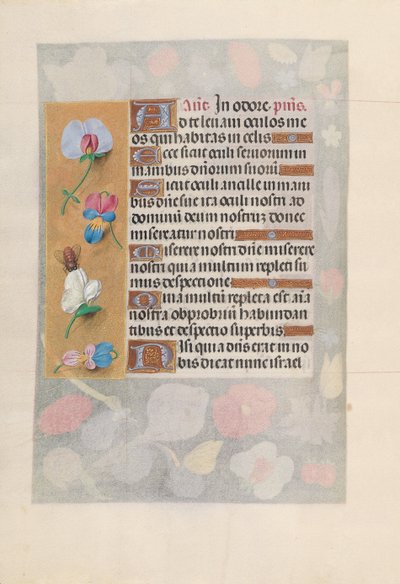 Añt. In odore. pmus.
Ad te levavi oculos me
os qui habitas in celis
Ecce sicut oculi servorum in
manibus dñorum suorũ
Sicut oculi ancille in mani
bus dñe sue ita oculi nostri ad
dominũ deum nostrũ donec
misereatur nostri
Miserere nostri dñe miserere
nostri quia multum repleti su
mus despectione
Quia multũ repleta est aĩa
nostra obprobriũ habundan
tibus et despectio superbis
Nisi quia dñs erat in no
bis dicat nunc israel